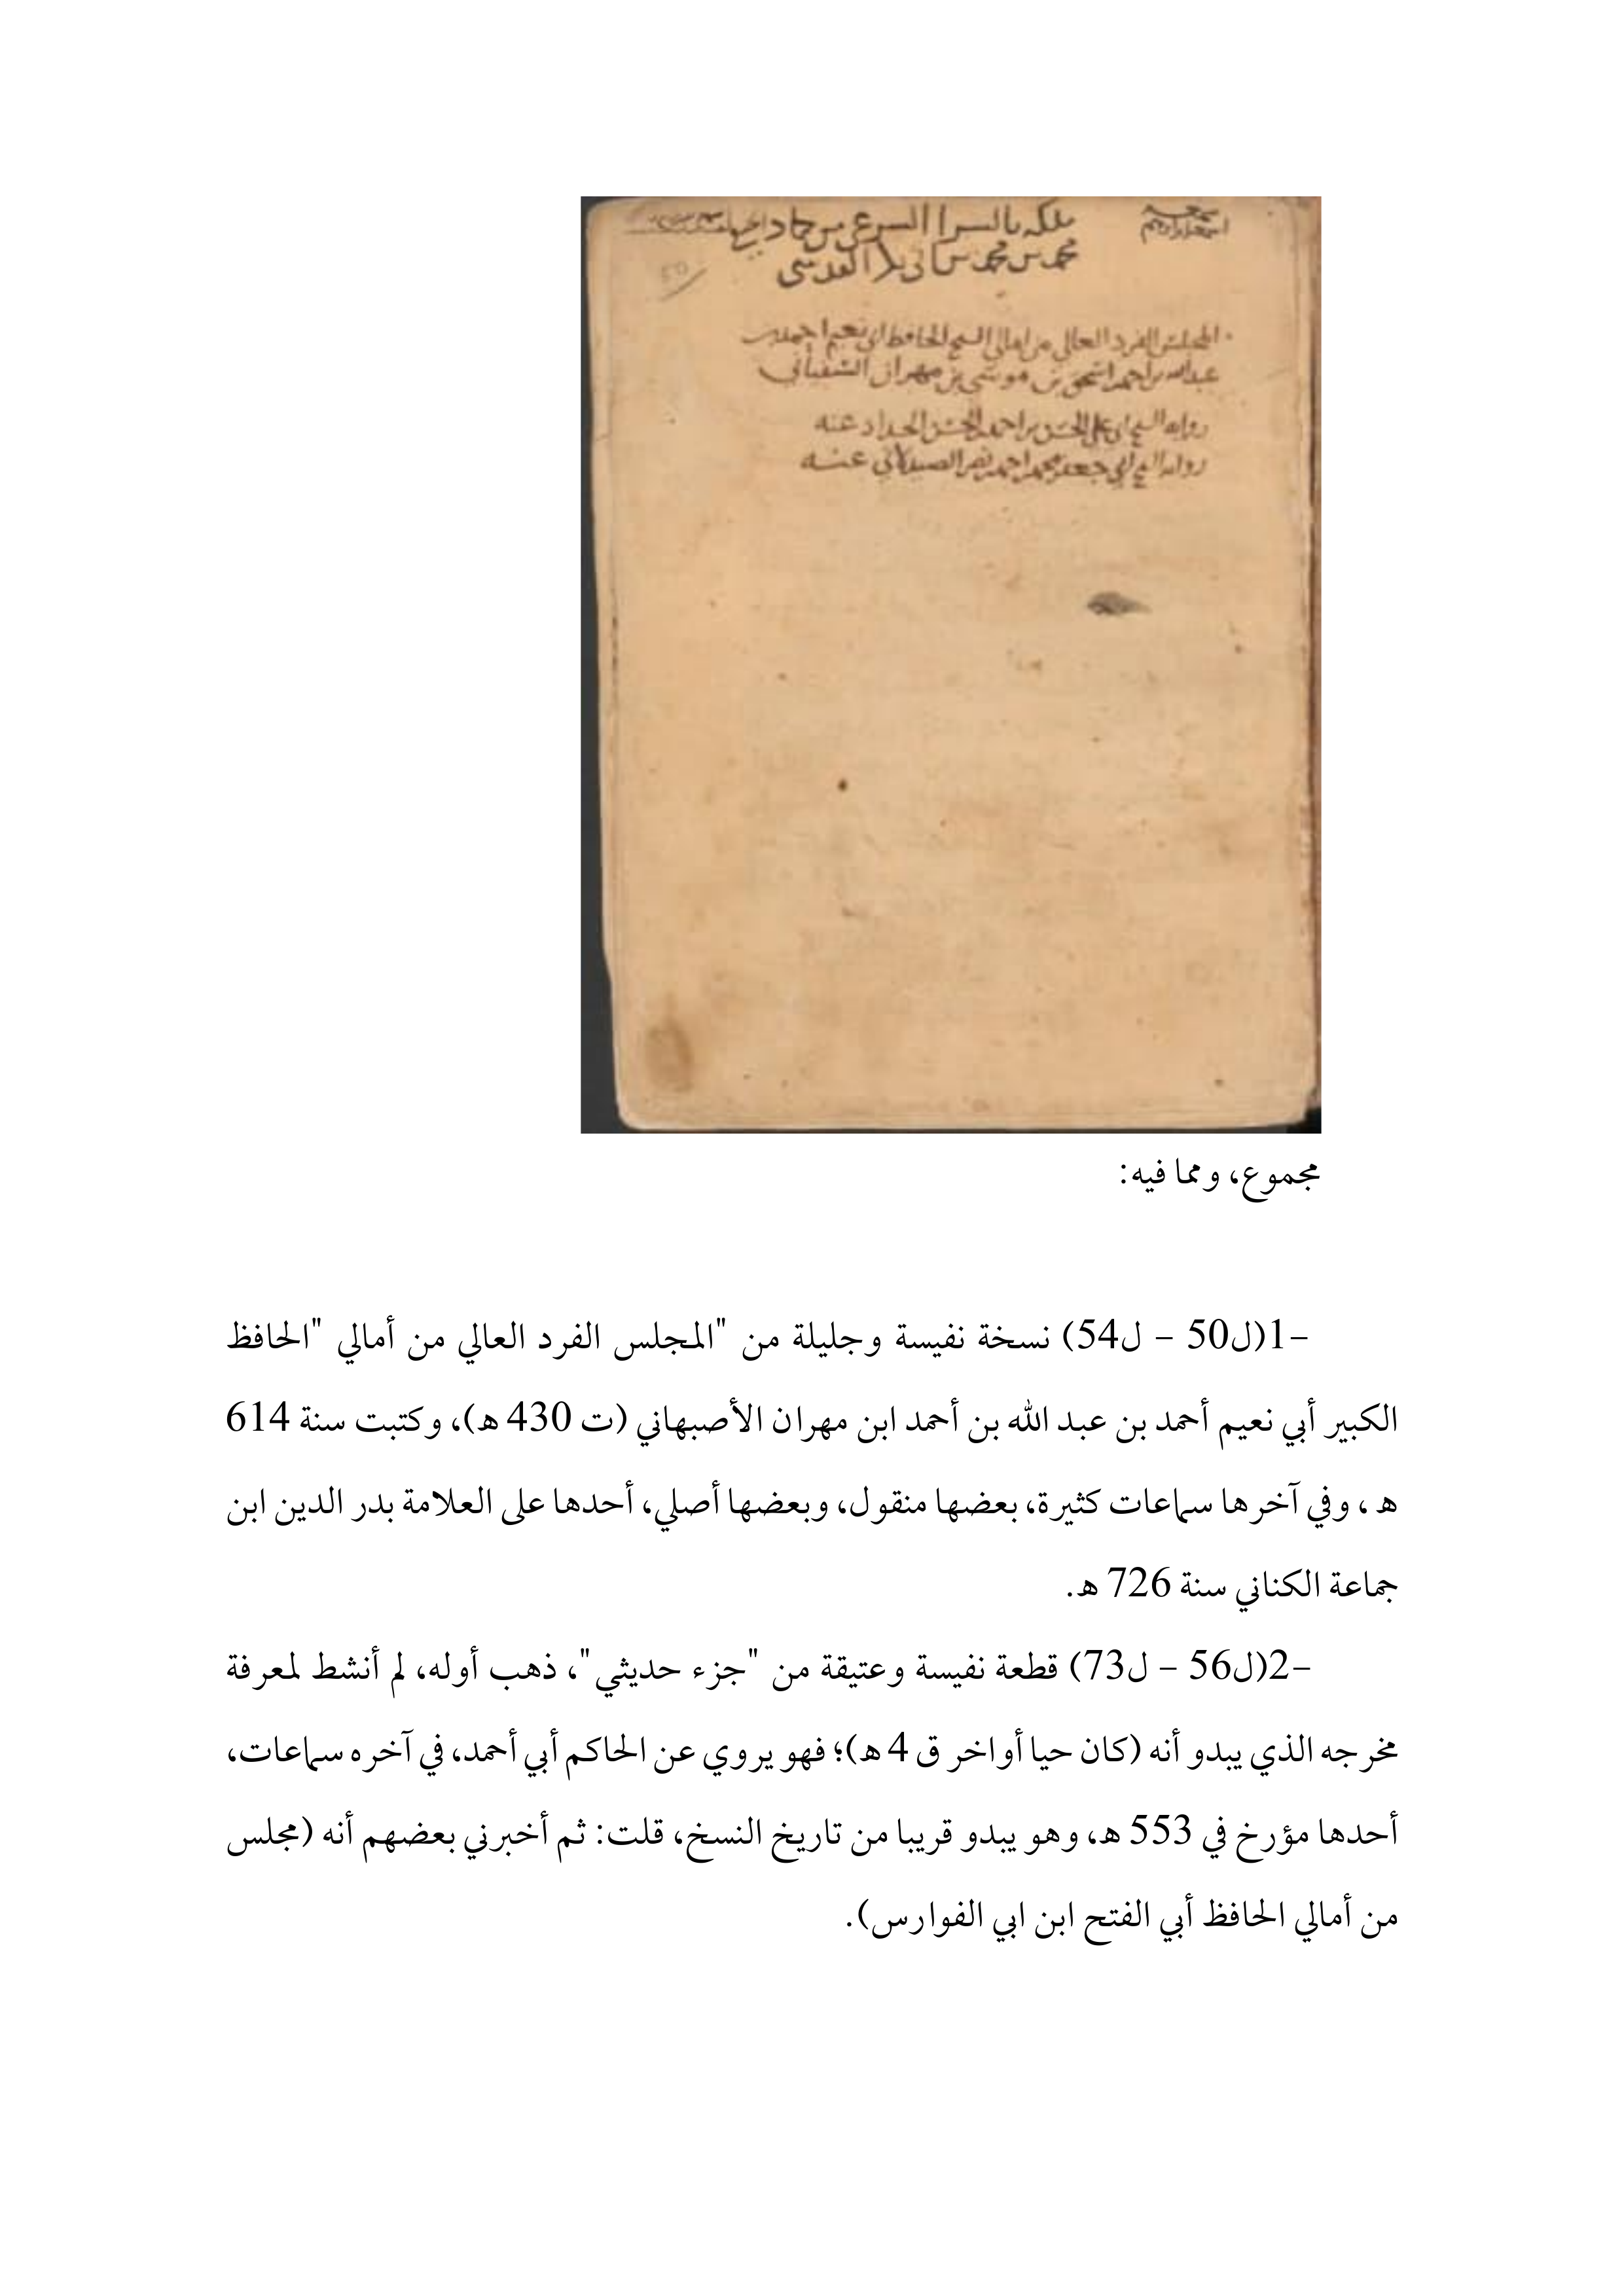 ملكه بالشرا الشرعي من
محمد بن محمد بن المقدسي
المجلس الفرد العالي من امالي الشيخ الحافظ ابي نعيم احمد بن
عبد الله بن احمد اسحق بن موسى بن مهران
رواية الشيخ ابي علي الحسن بن احمد الحسن الحداد عنه
رواية الشيخ ابي جعفر محمد احمد نصر الصيدلاني عنه
مجموع، ومما فيه:
-1(ل50 – ل54) نسخة نفيسة وجليلة من "المجلس الفرد العالي من أمالي "الحافظ
الكبير أبي نعيم أحمد بن عبد الله بن أحمد ابن مهران الأصبهاني (ت 430 ه)، وكتبت سنة 614
ه ، وفي آخرها سماعات كثيرة، بعضها منقول، وبعضها أصلي، أحدها على العلامة بدر الدين ابن
جماعة الكناني سنة 726 ه.
-2(ل56 – ل73) قطعة نفيسة وعتيقة من "جزء حديثي"، ذهب أوله، لم أنشط لمعرفة
مخرجه الذي يبدو أنه (كان حيا أواخر ق 4 ه)؛ فهو يروي عن الحاكم أبي أحمد، في آخره سماعات،
أحدها مؤرخ في 553 ه، وهو يبدو قريبا من تاريخ النسخ، قلت: ثم أخبرني بعضهم أنه (مجلس
من أمالي الحافظ أبي الفتح ابن ابي الفوارس).